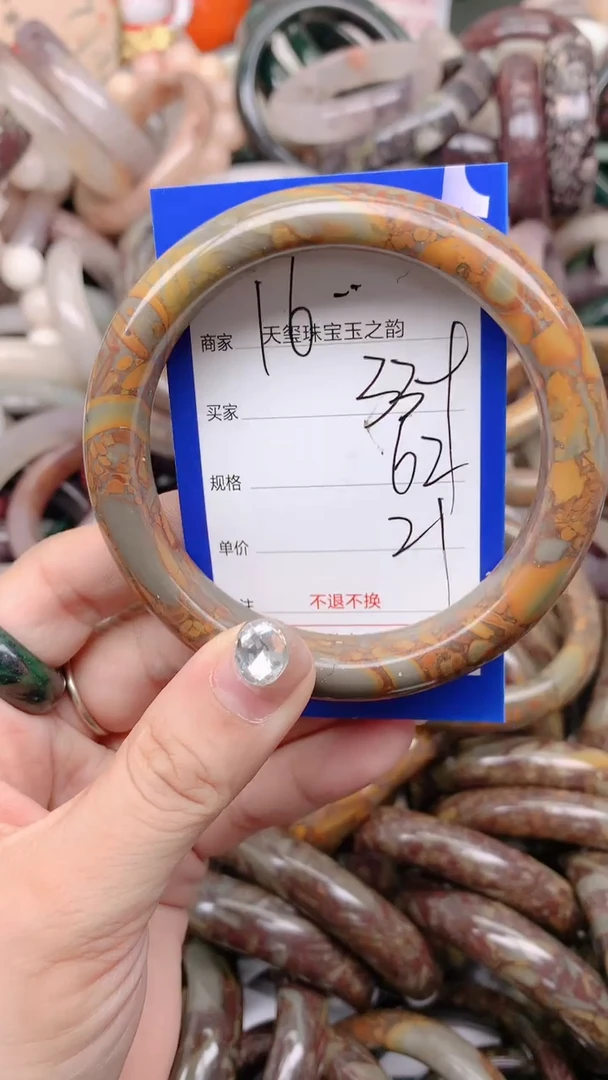 16
商家 天玺珠宝玉之韵
买家
规格 62
单价 21
注 不退不换